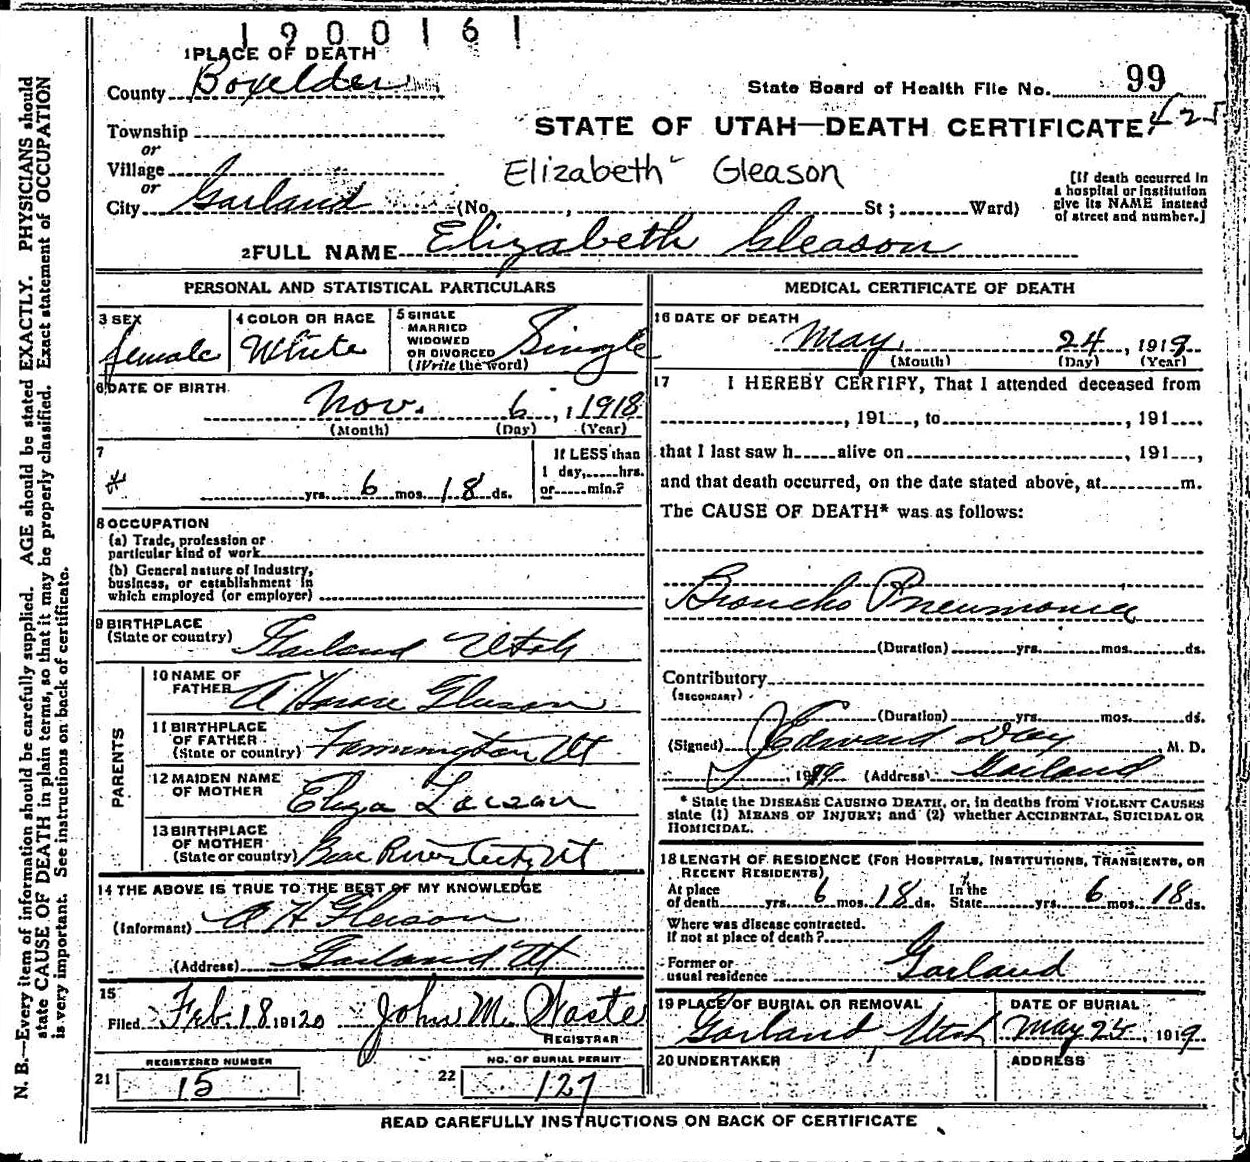 1900161
1 PLACE OF DEATH
County Boxelder
State Board of Health File No. 99
Township
or
Village
or
City Garland (No. , St ; Ward)
STATE OF UTAH—DEATH CERTIFICATE 425
Elizabeth Gleason
[If death occurred in
a hospital or institution
give its NAME instead
of street and number.]
2 FULL NAME Elizabeth Gleason
PERSONAL AND STATISTICAL PARTICULARS
3 SEX
female
4 COLOR OR RACE
White
5 SINGLE
MARRIED
WIDOWED
OR DIVORCED
(Write the word)
Single
6 DATE OF BIRTH
Nov. 6, 1918
(Month) (Day) (Year)
7
yrs. 6 mos. 18 ds.
If LESS than
1 day, hrs.
or min.?
8 OCCUPATION
(a) Trade, profession or
particular kind of work
(b) General nature of Industry,
business, or establishment in
which employed (or employer)
9 BIRTHPLACE
(State or country) Garland Utah
PARENTS
10 NAME OF
FATHER A Gleason
11 BIRTHPLACE
OF FATHER
(State or country) Farmington Ut
12 MAIDEN NAME
OF MOTHER Eliza Larsen
13 BIRTHPLACE
OF MOTHER
(State or country) Bear River City Ut
14 THE ABOVE IS TRUE TO THE BEST OF MY KNOWLEDGE
(Informant) A H Gleason
(Address) Garland Ut
15
Filed Feb. 18 19120 John M.
REGISTRAR
REGISTERED NUMBER
21 15
NO. OF BURIAL PERMIT
22 127
MEDICAL CERTIFICATE OF DEATH
16 DATE OF DEATH
May 24, 1919
(Month) (Day) (Year)
17 I HEREBY CERTIFY, That I attended deceased from
, 191 , to , 191 .
that I last saw h alive on , 191 ,
and that death occurred, on the date stated above, at m.
The CAUSE OF DEATH* was as follows:
Broncho Pneumonia
(Duration) yrs. mos. ds.
Contributory
(SECONDARY)
(Duration) yrs. mos. ds.
(Signed) J Edward Day, M. D.
, 1919 (Address) Garland
* State the DISEASE CAUSING DEATH, or, in deaths from VIOLENT CAUSES
state (1) MEANS OF INJURY; and (2) whether ACCIDENTAL, SUICIDAL OR
HOMICIDAL.
18 LENGTH OF RESIDENCE (FOR HOSPITALS, INSTITUTIONS, TRANSIENTS, OR
RECENT RESIDENTS)
At place
of death yrs. 6 mos. 18 ds. In the
State yrs. 6 mos. 18 ds.
Where was disease contracted.
If not at place of death?
Former or
usual residence Garland
19 PLACE OF BURIAL OR REMOVAL
Garland Utah
DATE OF BURIAL
May 25, 1919
20 UNDERTAKER
ADDRESS
READ CAREFULLY INSTRUCTIONS ON BACK OF CERTIFICATE
N. B.—Every item of information should be carefully supplied. AGE should be stated EXACTLY. PHYSICIANS should
state CAUSE OF DEATH in plain terms, so that it may be properly classified. Exact statement of OCCUPATION
is very important. See instructions on back of certificate.